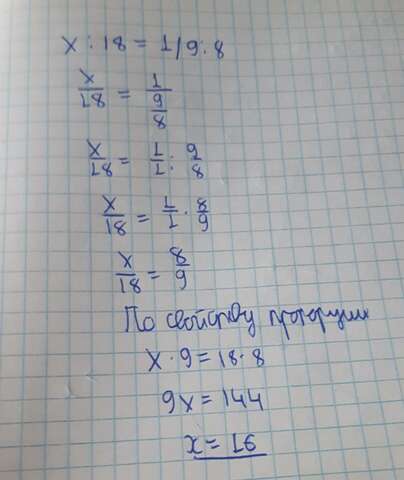 x : 18 = 1/9 : 8
x/18 = 1/(9/8)
x/18 = 1/1 : 9/8
x/18 = 1/1 · 8/9
x/18 = 8/9
По свойству пропорции
x · 9 = 18 · 8
9x = 144
x = 16